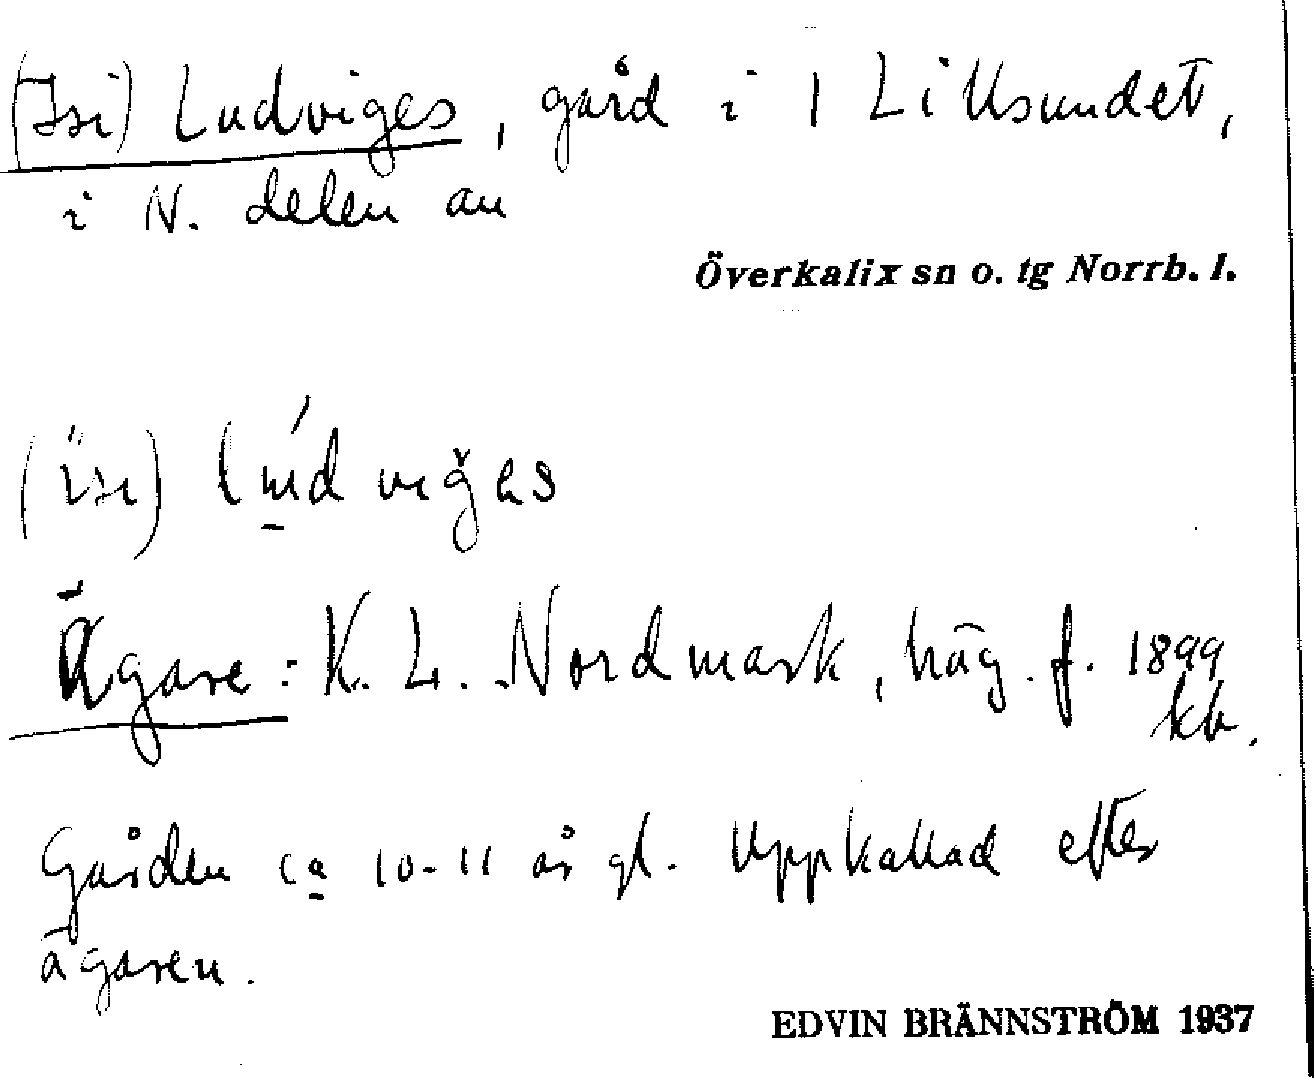 (Isi) Ludviges, gård i 1 Lillsundet,
i N. delen av
Överkalix sn o. tg Norrb. l.
(isi) lúdviǧes
Ägare: K. L. Nordmark, häg. f. 1899
kb.
Gården ca 10-11 år gl. Uppkallad efter
ägaren.
EDVIN BRÄNNSTRÖM 1937